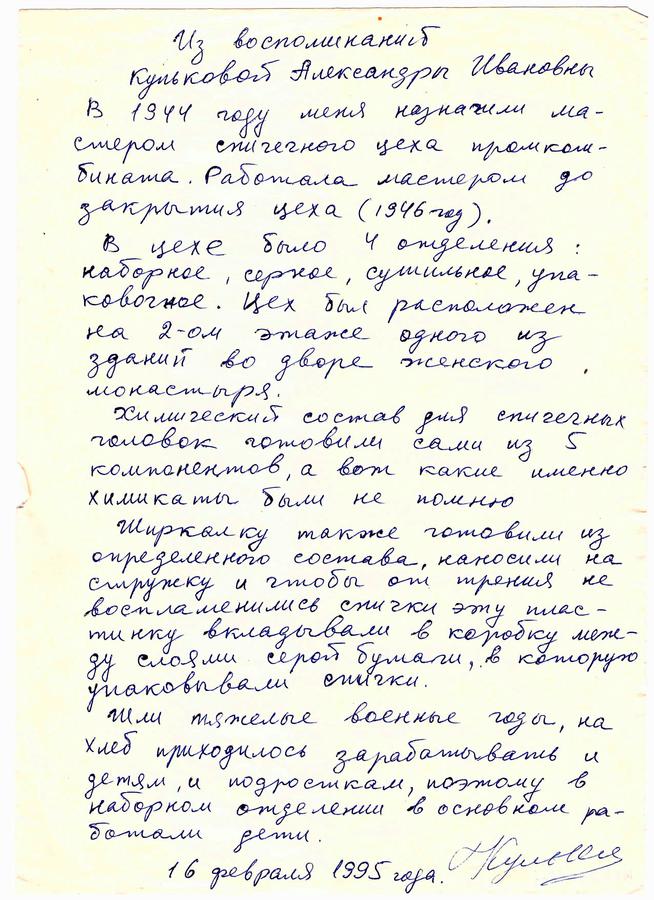 Из воспоминаний
Кульковой Александры Ивановны
В 1944 году меня назначили ма-
стером спичечного цеха промком-
бината. Работала мастером до
закрытия цеха (1946 год).
В цехе было 4 отделения:
наборное, серное, сушильное, упа-
ковочное. Цех был расположен
на 2-ом этаже одного из
зданий во дворе женского
монастыря.
Химический состав для спичечных
головок готовили сами из 5
компонентов, а вот какие именно
химикаты были не помню
Чиркалку также готовили из
определенного состава, наносили на
стружку и чтобы от трения не
воспламенились спички эту плас-
тинку вкладывали в коробку меж-
ду слоями серой бумаги, в которую
упаковывали спички.
Шли тяжелые военные годы, на
хлеб приходилось зарабатывать и
детям, и подросткам, поэтому в
наборном отделении в основном ра-
ботали дети.
16 февраля 1995 года.